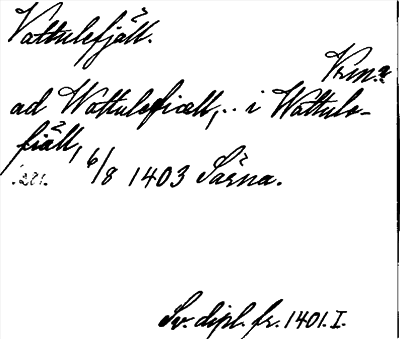 Vattulefjäll.
ad Wattulefiœll, .. i Wattule-
fiäll, 6/8 1403 Särna.
281.
Sv. dipl. fr. 1401. I.